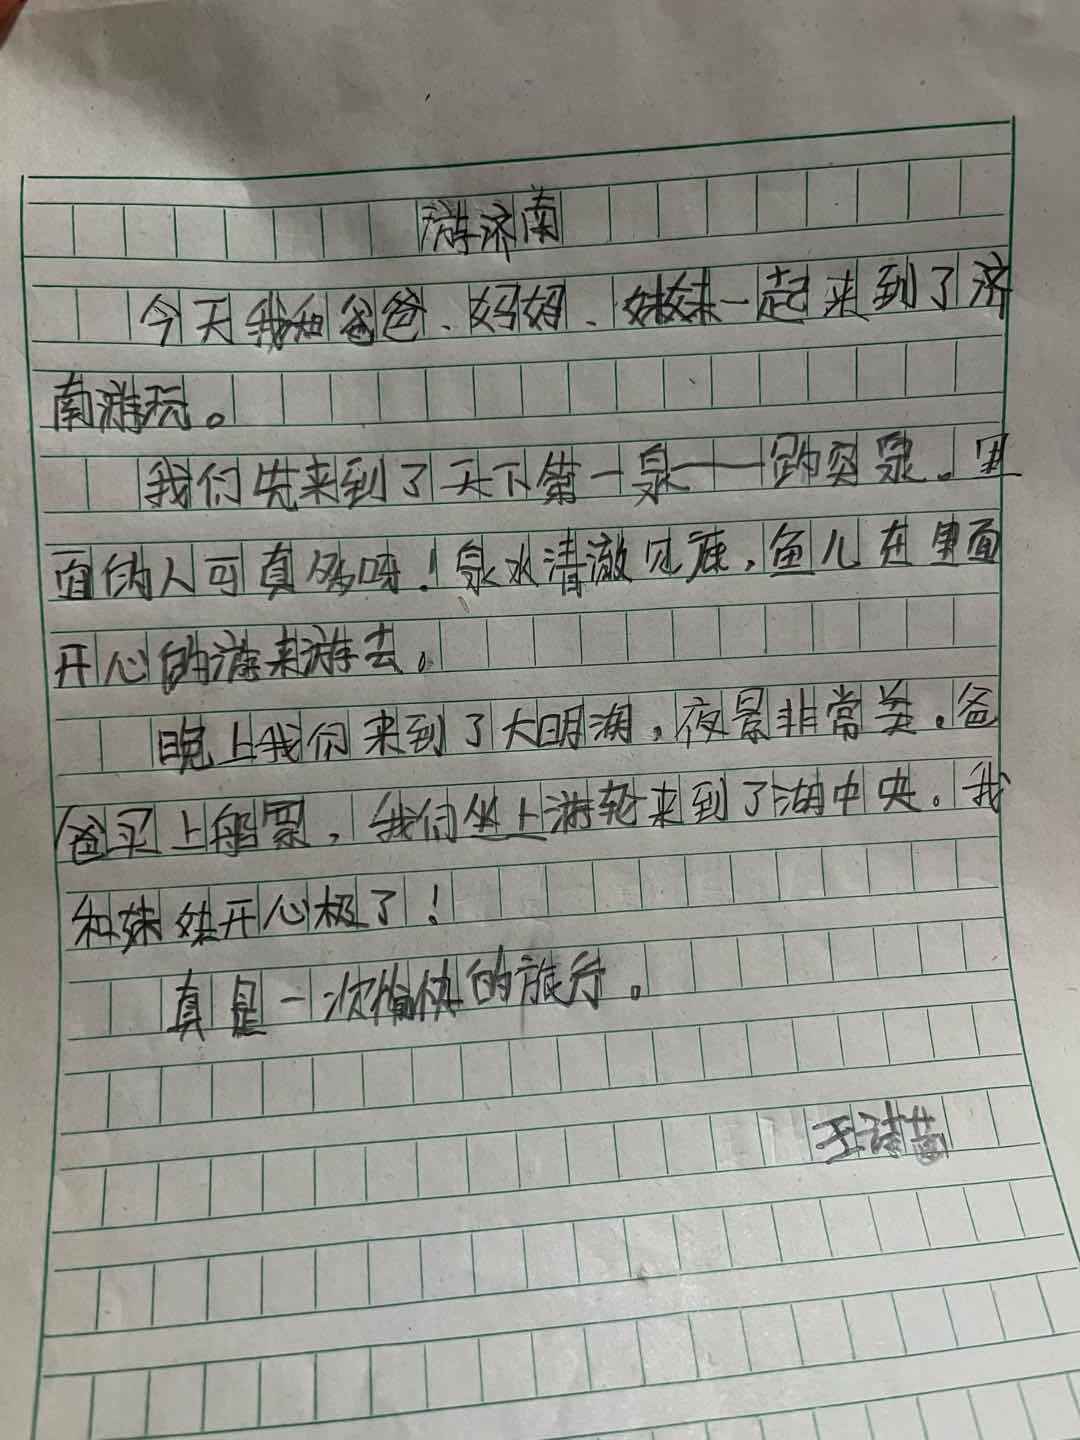 游济南
今天我和爸爸、妈妈、妹妹一起来到了济
南游玩。
我们先来到了天下第一泉——趵突泉。里
面的人可真多呀！泉水清澈见底，鱼儿在里面
开心的游来游去。
晚上我们来到了大明湖，夜景非常美。爸
爸买上船票，我们坐上游轮来到了湖中央。我
和妹妹开心极了！
真是一次愉快的旅行。
王诗